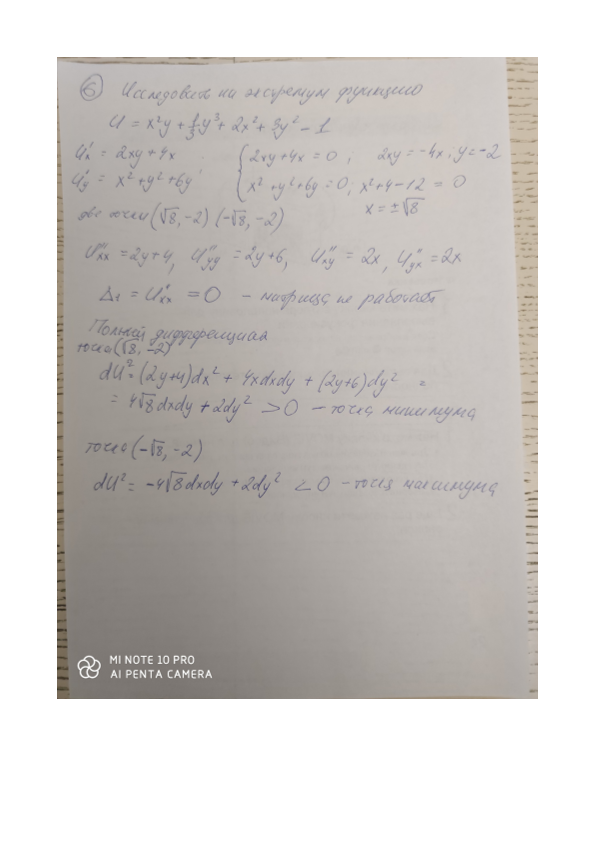 ⑥ Исследовать на экстремум функцию
U = x²y + 1/3 y³ + 2x² + 3y² - 1
U'x = 2xy + 4x { 2xy + 4x = 0 ; 2xy = -4x ; y = -2
U'y = x² + y² + 6y { x² + y² + 6y = 0 ; x² + 4 - 12 = 0
x = ±√8
две точки (√8, -2) (-√8, -2)
U''xx = 2y + 4, U''yy = 2y + 6, U''xy = 2x, U''yx = 2x
Δ₁ = U''xx = 0 - матрица не работает
Полный дифференциал
точка (√8, -2)
dU² = (2y+4)dx² + 4xdxdy + (2y+6)dy² =
= 4√8dxdy + 2dy² > 0 - точка минимума
точка (-√8, -2)
dU² = -4√8dxdy + 2dy² < 0 - точка
MI NOTE 10 PRO
AI PENTA CAMERA